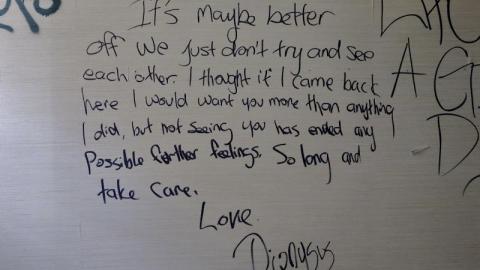 It's Maybe better
off We Just don't try and see
each other. I thought if I came back
here I would want you more than anything
I did, but not seeing you has ended any
Possible further feelings. So long and
take care.
Love.
Dionysus
A